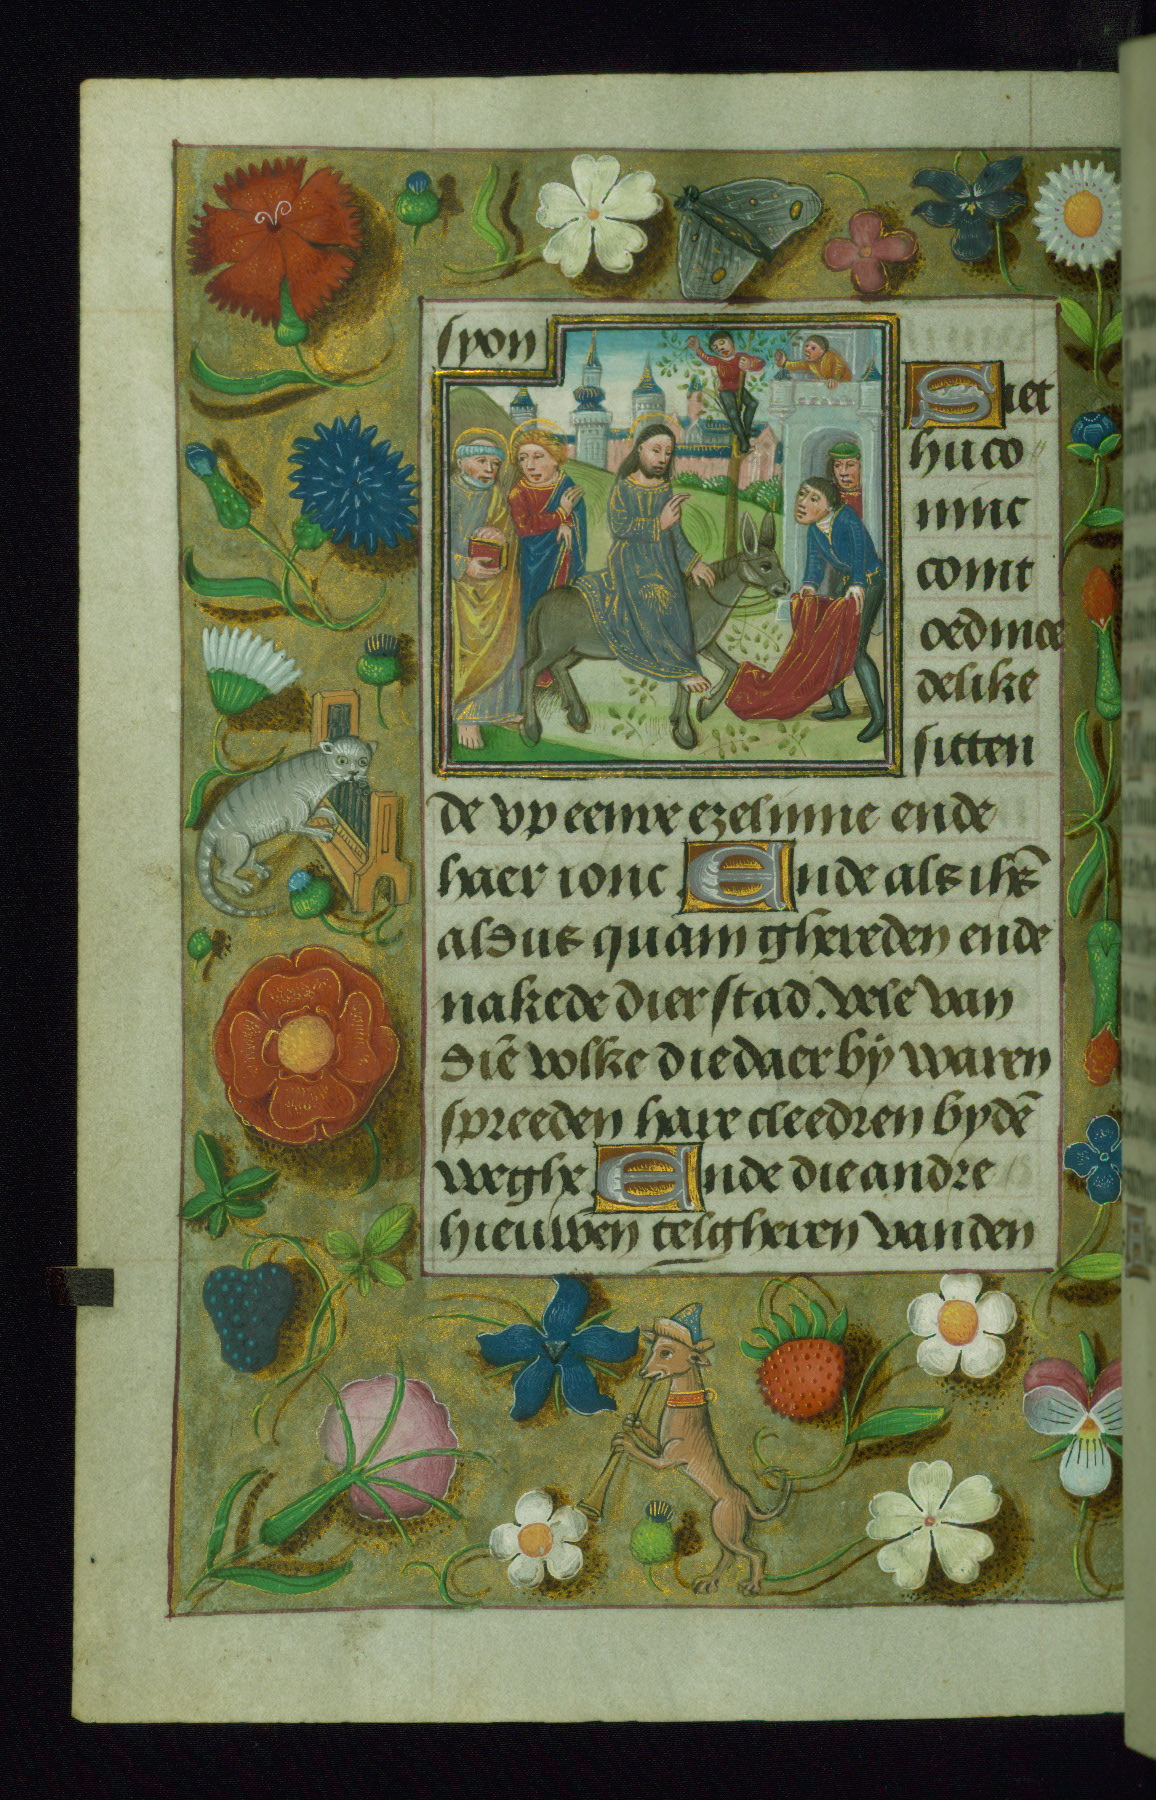 syon
Siet
hu co
ninc
comt
oedmoe
delike
sitten
de vp eenre ezelinne ende
haer ionc Ende als ihs̄
aldus quam ghereden ende
nakede dier stad. vele van
diē volke die daer bÿ waren
spreeden hare cleedren by dē
weghe Ende die andre
hieuwen telgheren van den